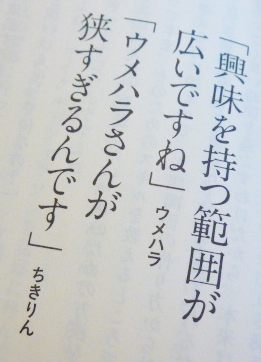 「興味を持つ範囲が
広いですね」ウメハラ
「ウメハラさんが
狭すぎるんです」ちきりん